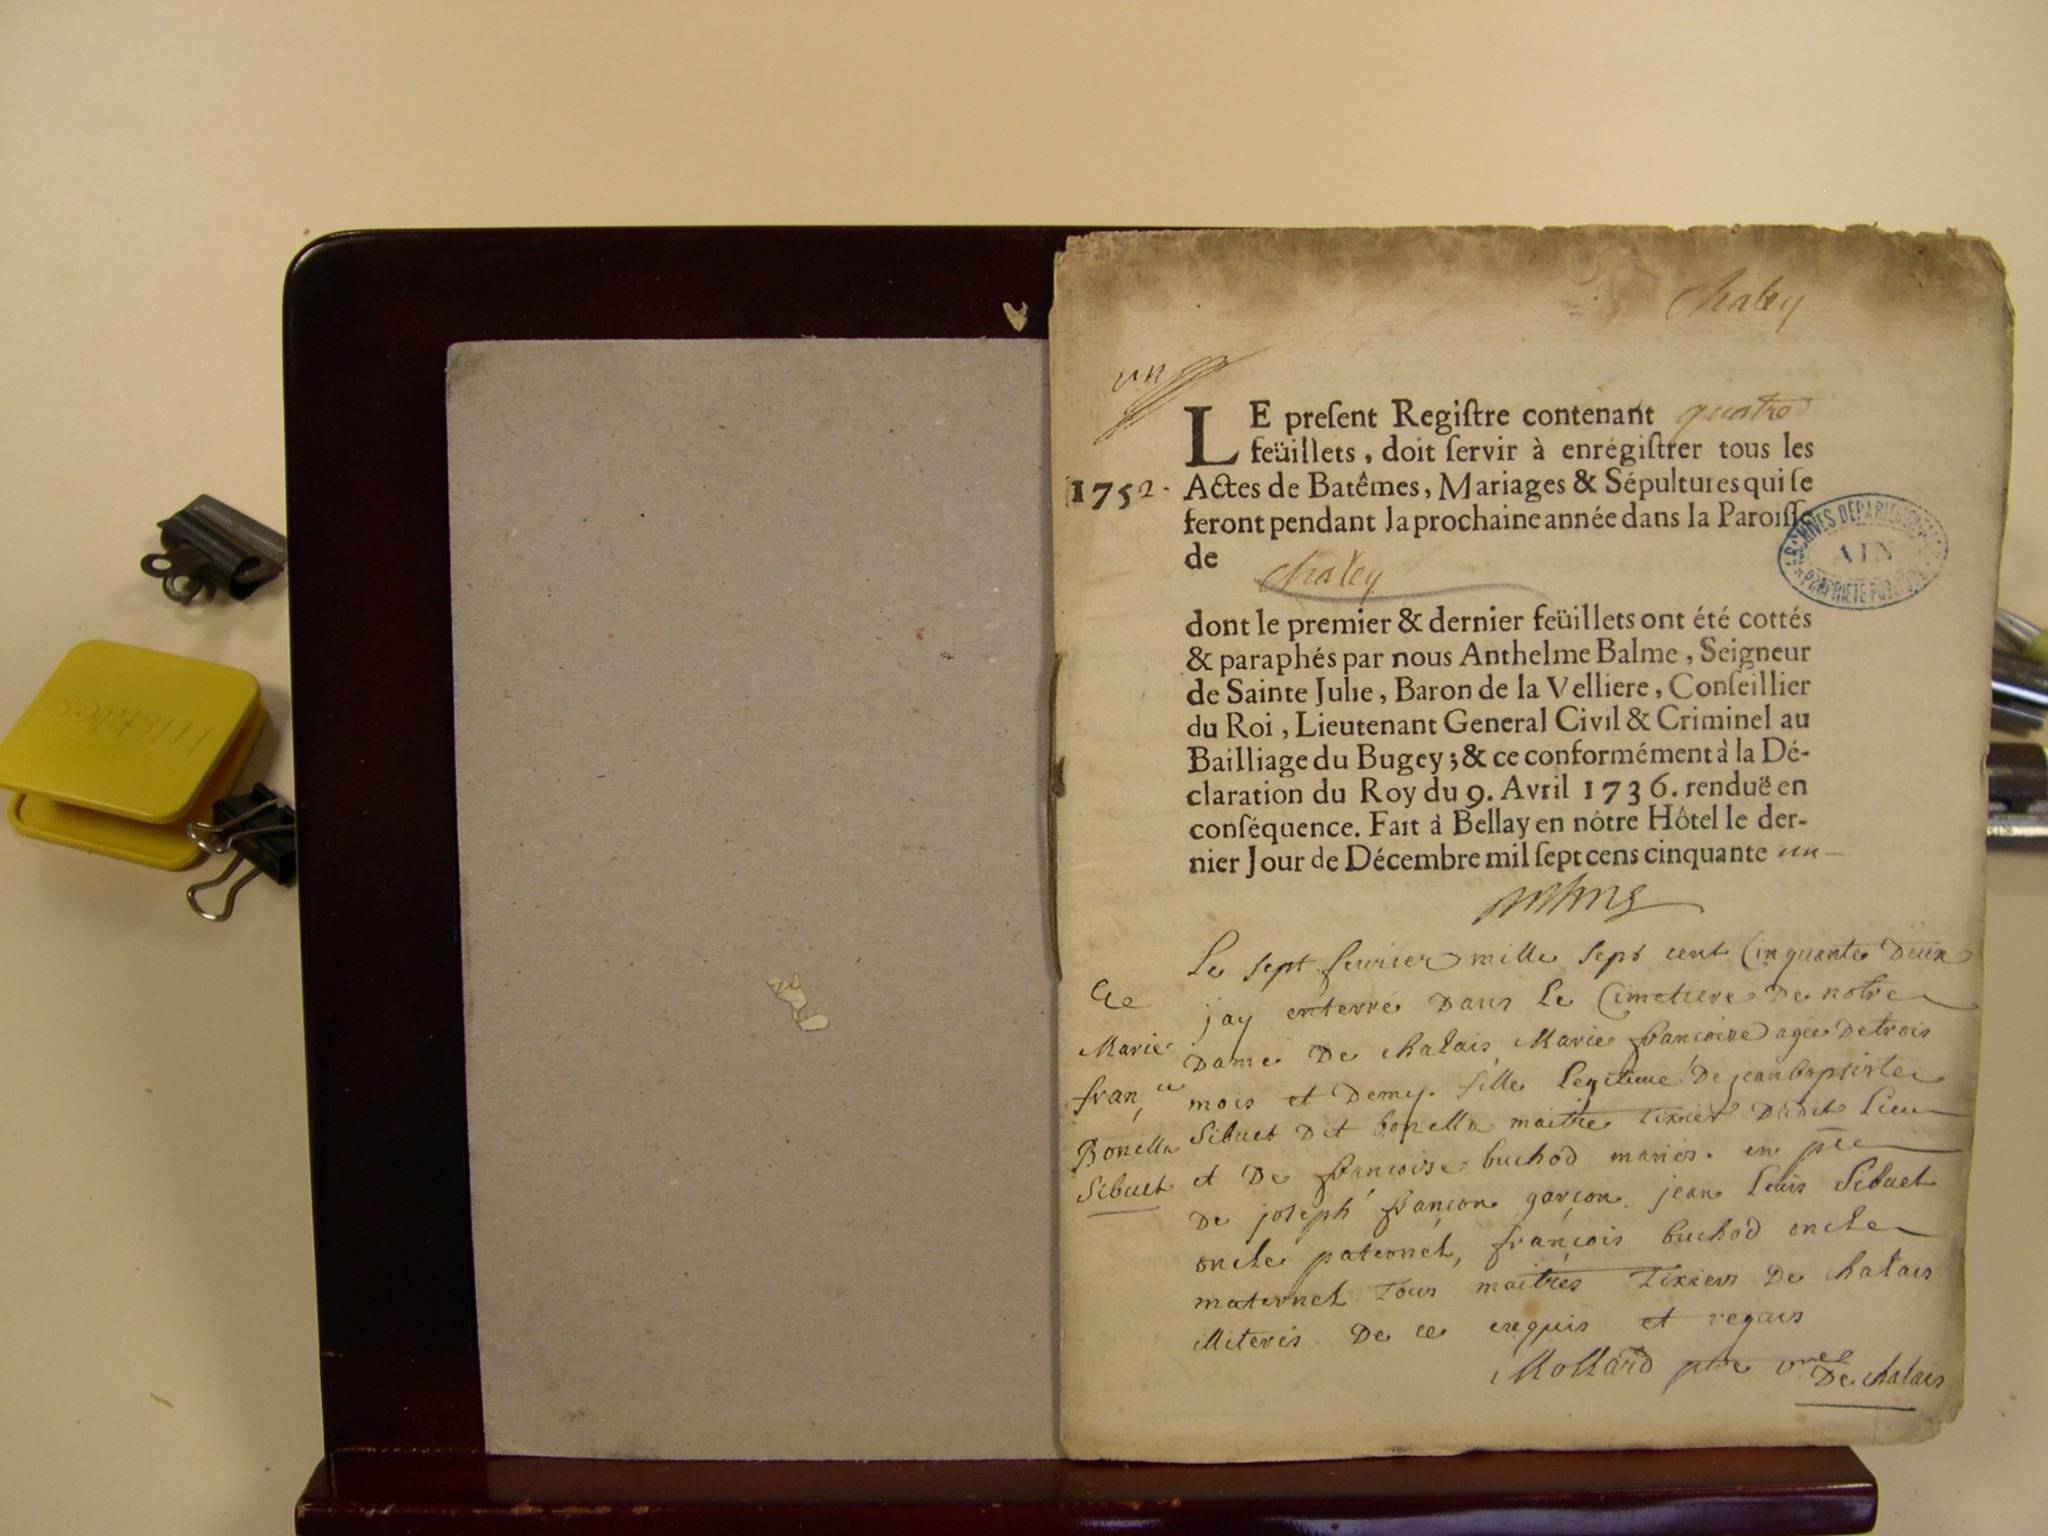 chaley
un
LE preſent Regiſtre contenant quatre
feüillets, doit ſervir à enrégiſtrer tous les
1752. Actes de Batêmes, Mariages & Sépultures qui ſe
feront pendant la prochaine année dans la Paroiſſe
de chaley
ARCHIVES DEPARTEMENTALES
AIN
PROPRIETE PUBLIQUE
dont le premier & dernier feüillets ont été cottés
& paraphés par nous Anthelme Balme, Seigneur
de Sainte Julie, Baron de la Velliere, Conſeillier
du Roi, Lieutenant General Civil & Criminel au
Bailliage du Bugey; & ce conformément à la Dé-
claration du Roy du 9. Avril 1736. renduë en
conſéquence. Fait à Bellay en nôtre Hôtel le der-
nier Jour de Décembre mil ſept cens cinquante un
Le sept fevrier mille sept cent Cinquante Deux
jay enterré Dans Le Cimetiere De notre
Dame De chalais, Marie françoise agée De trois
mois et Demy. fille Legitime De jean baptiste
Sibuet Dit bonella maitre tixier Dudit Lieu
et De françoise buchod mariés. en pñce
De joseph françon garçon, jean Louis Sibuet
oncle paternel, françois buchod oncle
maternel Tous maitres Tixiers De chalais
illiterés De ce enquis et requis
Mollard ptre
De chalais
Marie
fran,ce
Bonella
Sibuet